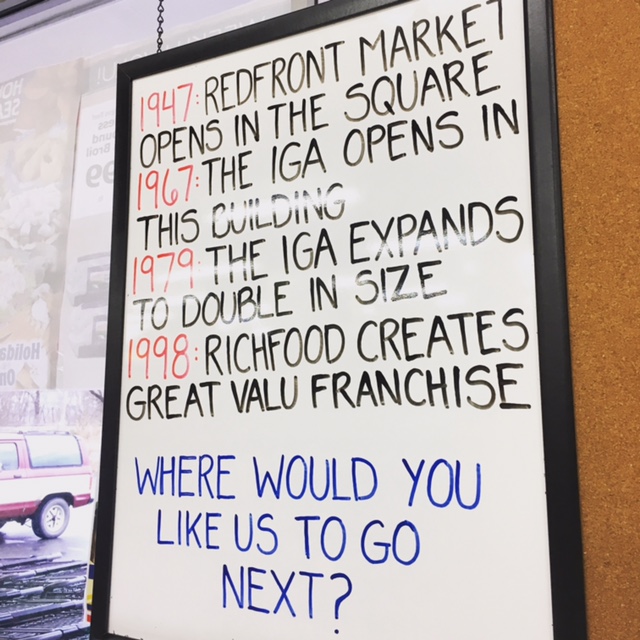 1947: REDFRONT MARKET
OPENS IN THE SQUARE
1967: THE IGA OPENS IN
THIS BUILDING
1979: THE IGA EXPANDS
TO DOUBLE IN SIZE
1998: RICHFOOD CREATES
GREAT VALU FRANCHISE
WHERE WOULD YOU
LIKE US TO GO
NEXT?